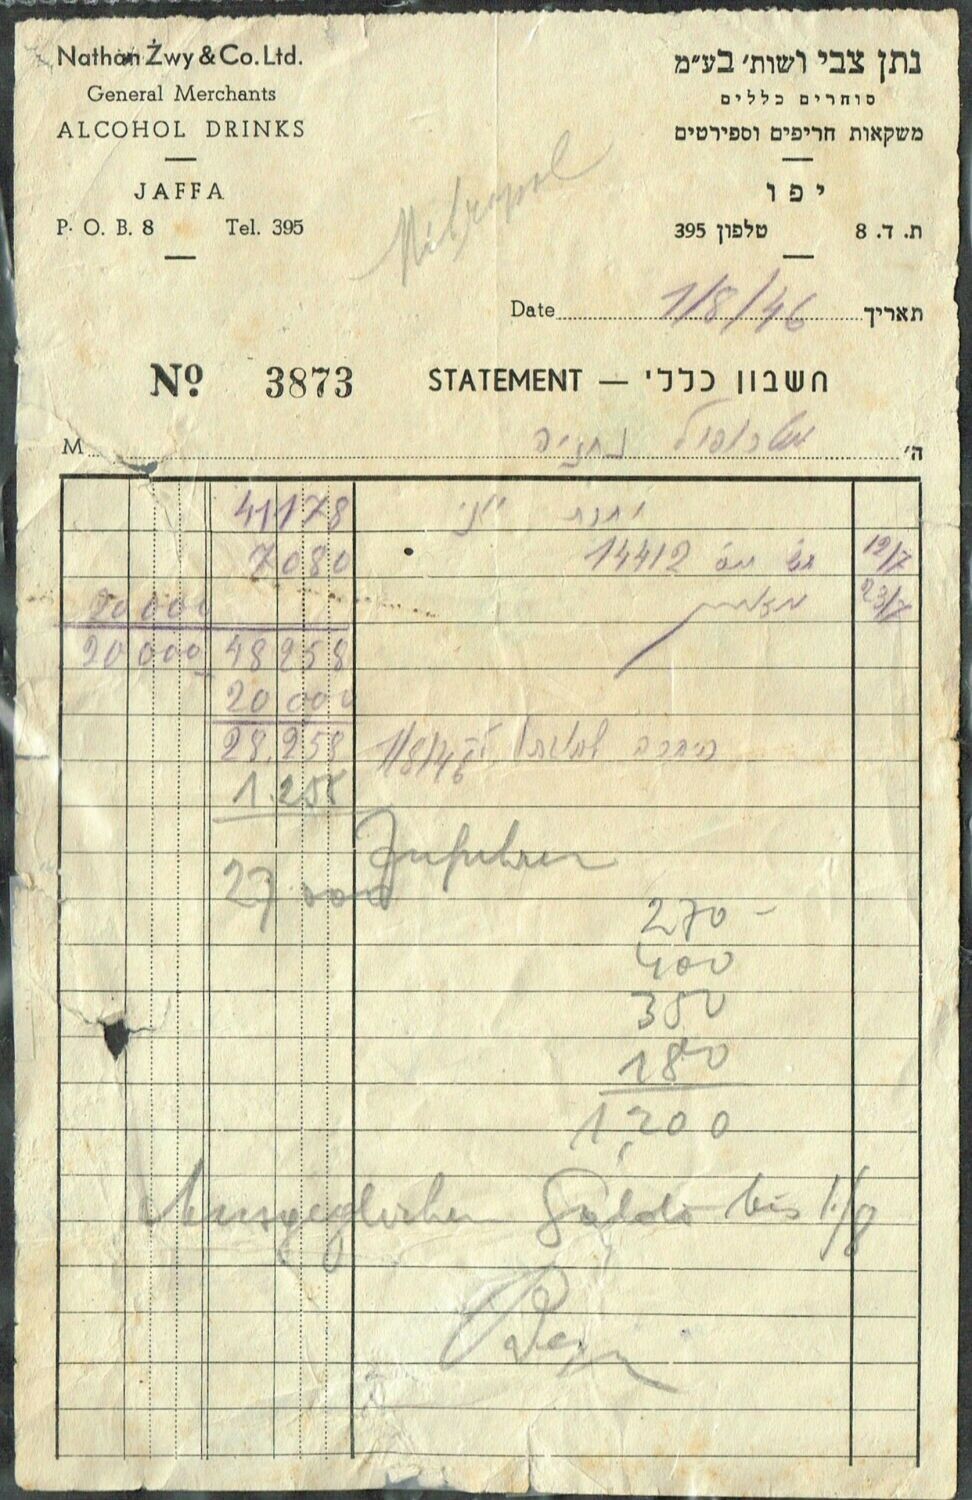 Nathan Zwy & Co. Ltd.
General Merchants
ALCOHOL DRINKS
JAFFA
P. O. B. 8 Tel. 395
נתן צבי ושות׳ בע״מ
סוחרים כללים
משקאות חריפים וספירטים
יפו
ת. ד. 8 טלפון 395
Metropol
Date 1/8/46 תאריך
No 3873 STATEMENT — חשבון כללי
M ה׳ מטרופול נתניה
41178
7080 14412 12/7
20 000 23/7
20 000 48 258
20 000
28.258 1/8/46
1.255
27 000
270 -
400
350
180
1,200
Ausgeglichen Saldo bis 1/8